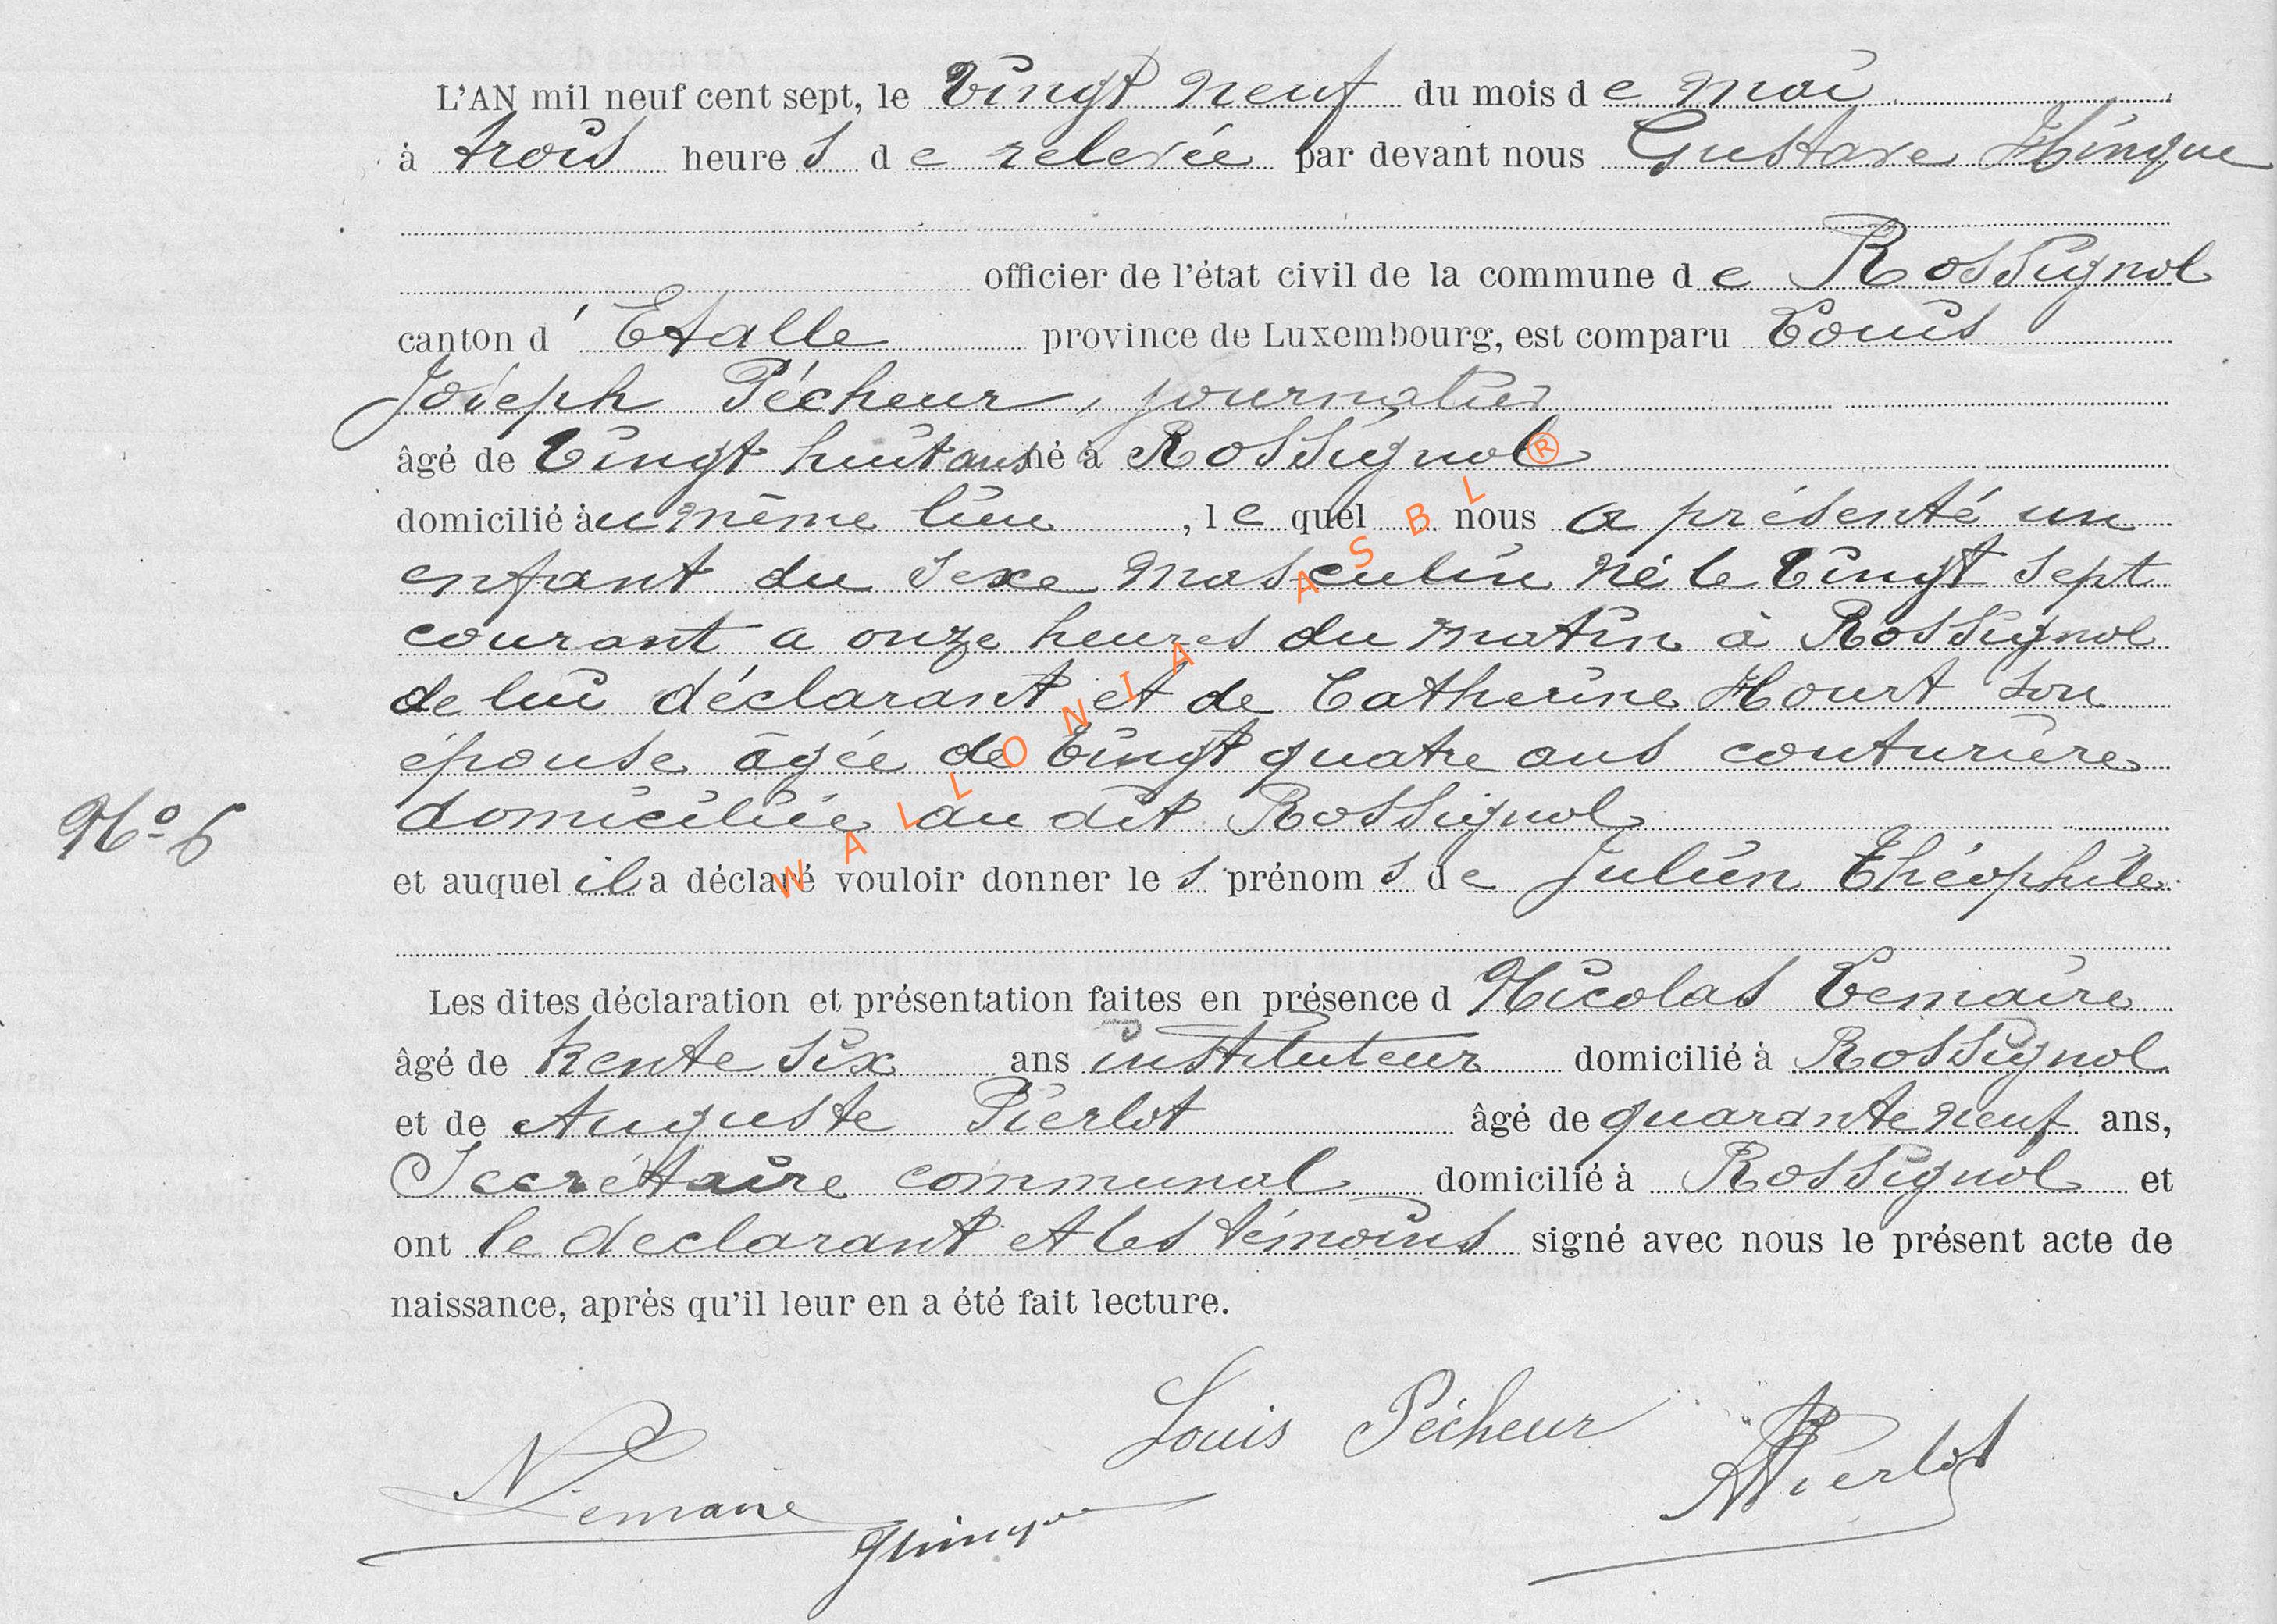 L'AN mil neuf cent sept, le Vingt neuf du mois de mai
à trois heures de relevée par devant nous Gustave Hinque
officier de l'état civil de la commune de Rossignol
canton d'Etalle province de Luxembourg, est comparu Louis
Joseph Pécheur, journalier
âgé de Vingt huit ans né à Rossignol ®
domicilié àu même lieu, le quel nous a présenté un
enfant du sexe masculin né le Vingt sept
courant a onze heures du matin à Rossignol
de lui déclarant et de Catherine Hourt son
épouse âgée de Vingt quatre ans couturière
domiciliée au dit Rossignol
No 6
et auquel il a déclaré vouloir donner les prénoms de Julien Théophile
Les dites déclaration et présentation faites en présence d Nicolas Lemaire
âgé de trente six ans instituteur domicilié à Rossignol
et de Auguste Pierlot âgé de quarante neuf ans,
Secrétaire communal domicilié à Rossignol et
ont le declarant et les témoins signé avec nous le présent acte de
naissance, après qu'il leur en a été fait lecture.
Louis Pécheur
N Lemaire
GHinque
APierlot
WALLONIA ASBL